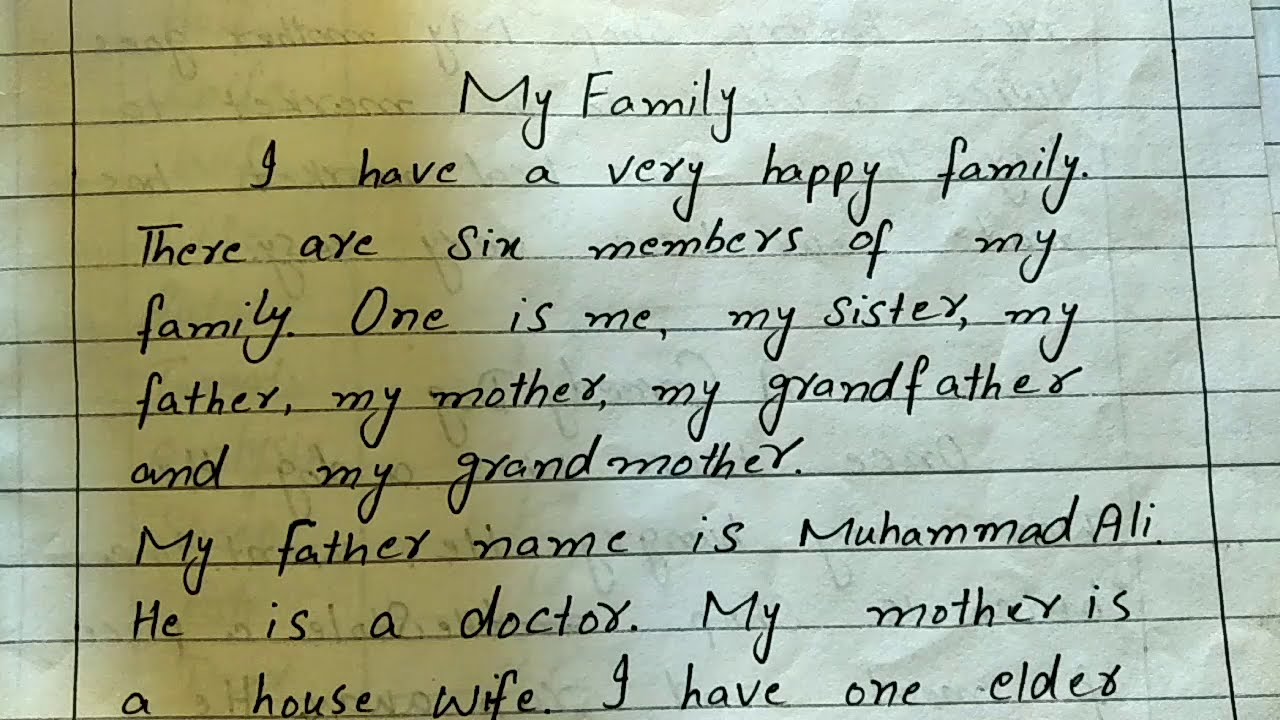 My Family
I have a very happy family.
There are six members of my
family. One is me, my sister, my
father, my mother, my grandfather
and my grandmother.
My father name is Muhammad Ali.
He is a doctor. My mother is
a house wife. I have one elder